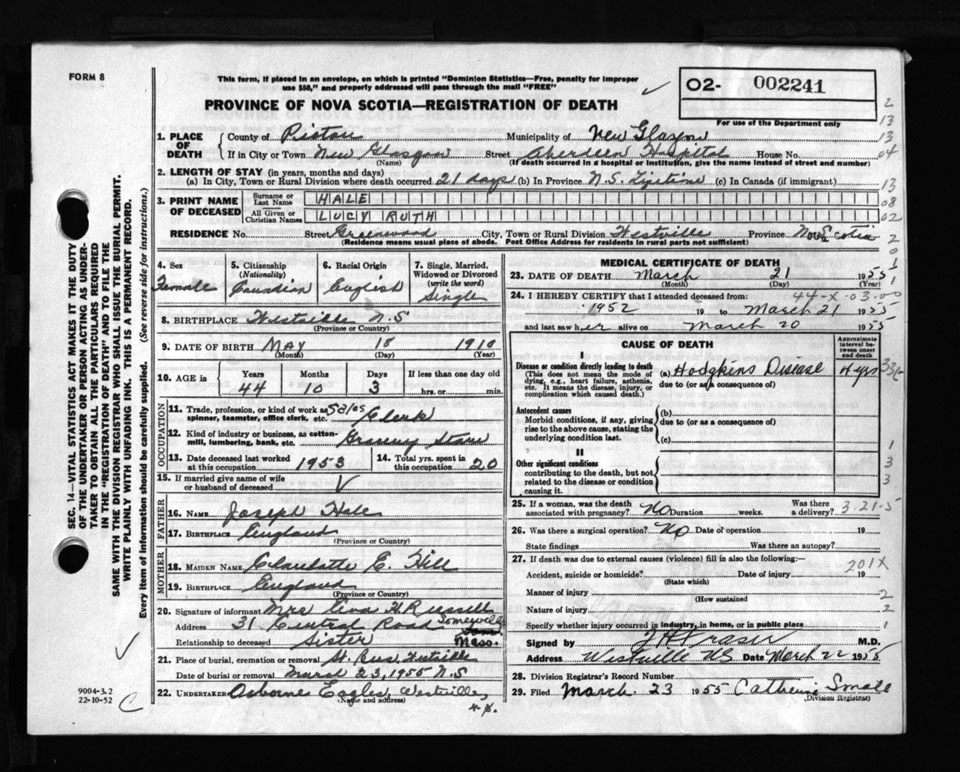 FORM 8
This form, if placed in an envelope, on which is printed "Dominion Statistics—Free, penalty for improper
use $50," and properly addressed will pass through the mail "FREE"
PROVINCE OF NOVA SCOTIA—REGISTRATION OF DEATH
02- 002241
For use of the Department only
2
13
13
04
13
08
02
2
0
1. PLACE OF DEATH
County of Pictou Municipality of New Glasgow
If in City or Town New Glasgow Street Aberdeen Hospital House No.
(Name) (If death occurred in a hospital or institution, give the name instead of street and number)
2. LENGTH OF STAY (in years, months and days)
(a) In City, Town or Rural Division where death occurred 21 days (b) In Province N.S. Lifetime (c) In Canada (if immigrant)
3. PRINT NAME OF DECEASED
Surname or Last Name HALE
All Given or Christian Names LUCY RUTH
RESIDENCE No. Street Greenwood City, Town or Rural Division Westville Province Nova Scotia
(Residence means usual place of abode. Post Office Address for residents in rural parts not sufficient)
4. Sex
Female
5. Citizenship
(Nationality)
Canadian
6. Racial Origin
English
7. Single, Married,
Widowed or Divorced
(write the word)
Single
8. BIRTHPLACE Westville N.S
(Province or Country)
9. DATE OF BIRTH MAY 18 1910
(Month) (Day) (Year)
10. AGE in Years Months Days If less than one day old
44 10 3 hrs. or min.
OCCUPATION
11. Trade, profession, or kind of work as
spinner, teamster, office clerk, etc. Sales Clerk
12. Kind of industry or business, as cotton-
mill, lumbering, bank, etc. Grocery Store
13. Date deceased last worked
at this occupation 1953
14. Total yrs. spent in
this occupation 20
15. If married give name of wife
or husband of deceased
FATHER
16. NAME Joseph Hale
17. BIRTHPLACE England
(Province or Country)
MOTHER
18. MAIDEN NAME E. Hill
19. BIRTHPLACE England
(Province or Country)
20. Signature of informant Mrs H. Russell
Address 31 Central Road Somerville
Mass.
Relationship to deceased Sister
21. Place of burial, cremation or removal
Date of burial or removal March 23, 1955 N.S
22. UNDERTAKER Osborne Eagles Westville,
(Name and address)
N.S.
MEDICAL CERTIFICATE OF DEATH
23. DATE OF DEATH March 21 1955
(Month) (Day) (Year)
24. I HEREBY CERTIFY that I attended deceased from:
44-X-03-00
1952 19 to March 21 1955
and last saw her alive on March 20 1955
CAUSE OF DEATH
Approximate interval between onset and death
I
Disease or condition directly leading to death
(This does not mean the mode of
dying, e.g., heart failure, asthenia,
etc. It means the disease, injury, or
complication which caused death.)
(a) Hodgkins Disease 4 yrs
due to (or as a consequence of)
Antecedent causes
Morbid conditions, if any, giving
rise to the above cause, stating the
underlying condition last.
(b)
due to (or as a consequence of)
(c)
II
Other significant conditions
contributing to the death, but not
related to the disease or condition
causing it.
1
3
3
25. If a woman, was the death
associated with pregnancy? No Duration weeks. Was there
a delivery? 3-21-5
26. Was there a surgical operation? No Date of operation 19
State findings Was there an autopsy?
27. If death was due to external causes (violence) fill in also the following:—
201X
Accident, suicide or homicide? Date of injury 19
(State which)
Manner of injury 2
(How sustained)
Nature of injury 2
Specify whether injury occurred in industry, in home, or in public place 1
Signed by Fraser M.D.
Address Westville NS Date March 22 1955
28. Division Registrar's Record Number
29. Filed March 23 1955 Catherine Small
(Division Registrar)
SEC. 14—VITAL STATISTICS ACT MAKES IT THE DUTY
OF THE UNDERTAKER OR PERSON ACTING AS UNDER-
TAKER TO OBTAIN ALL THE PARTICULARS REQUIRED
IN THE "REGISTRATION OF DEATH" AND TO FILE THE
SAME WITH THE DIVISION REGISTRAR WHO SHALL ISSUE THE BURIAL PERMIT.
WRITE PLAINLY WITH UNFADING INK. THIS IS A PERMANENT RECORD.
Every item of information should be carefully supplied. (See reverse side for instructions.)
9004-3.2
22-10-52
C